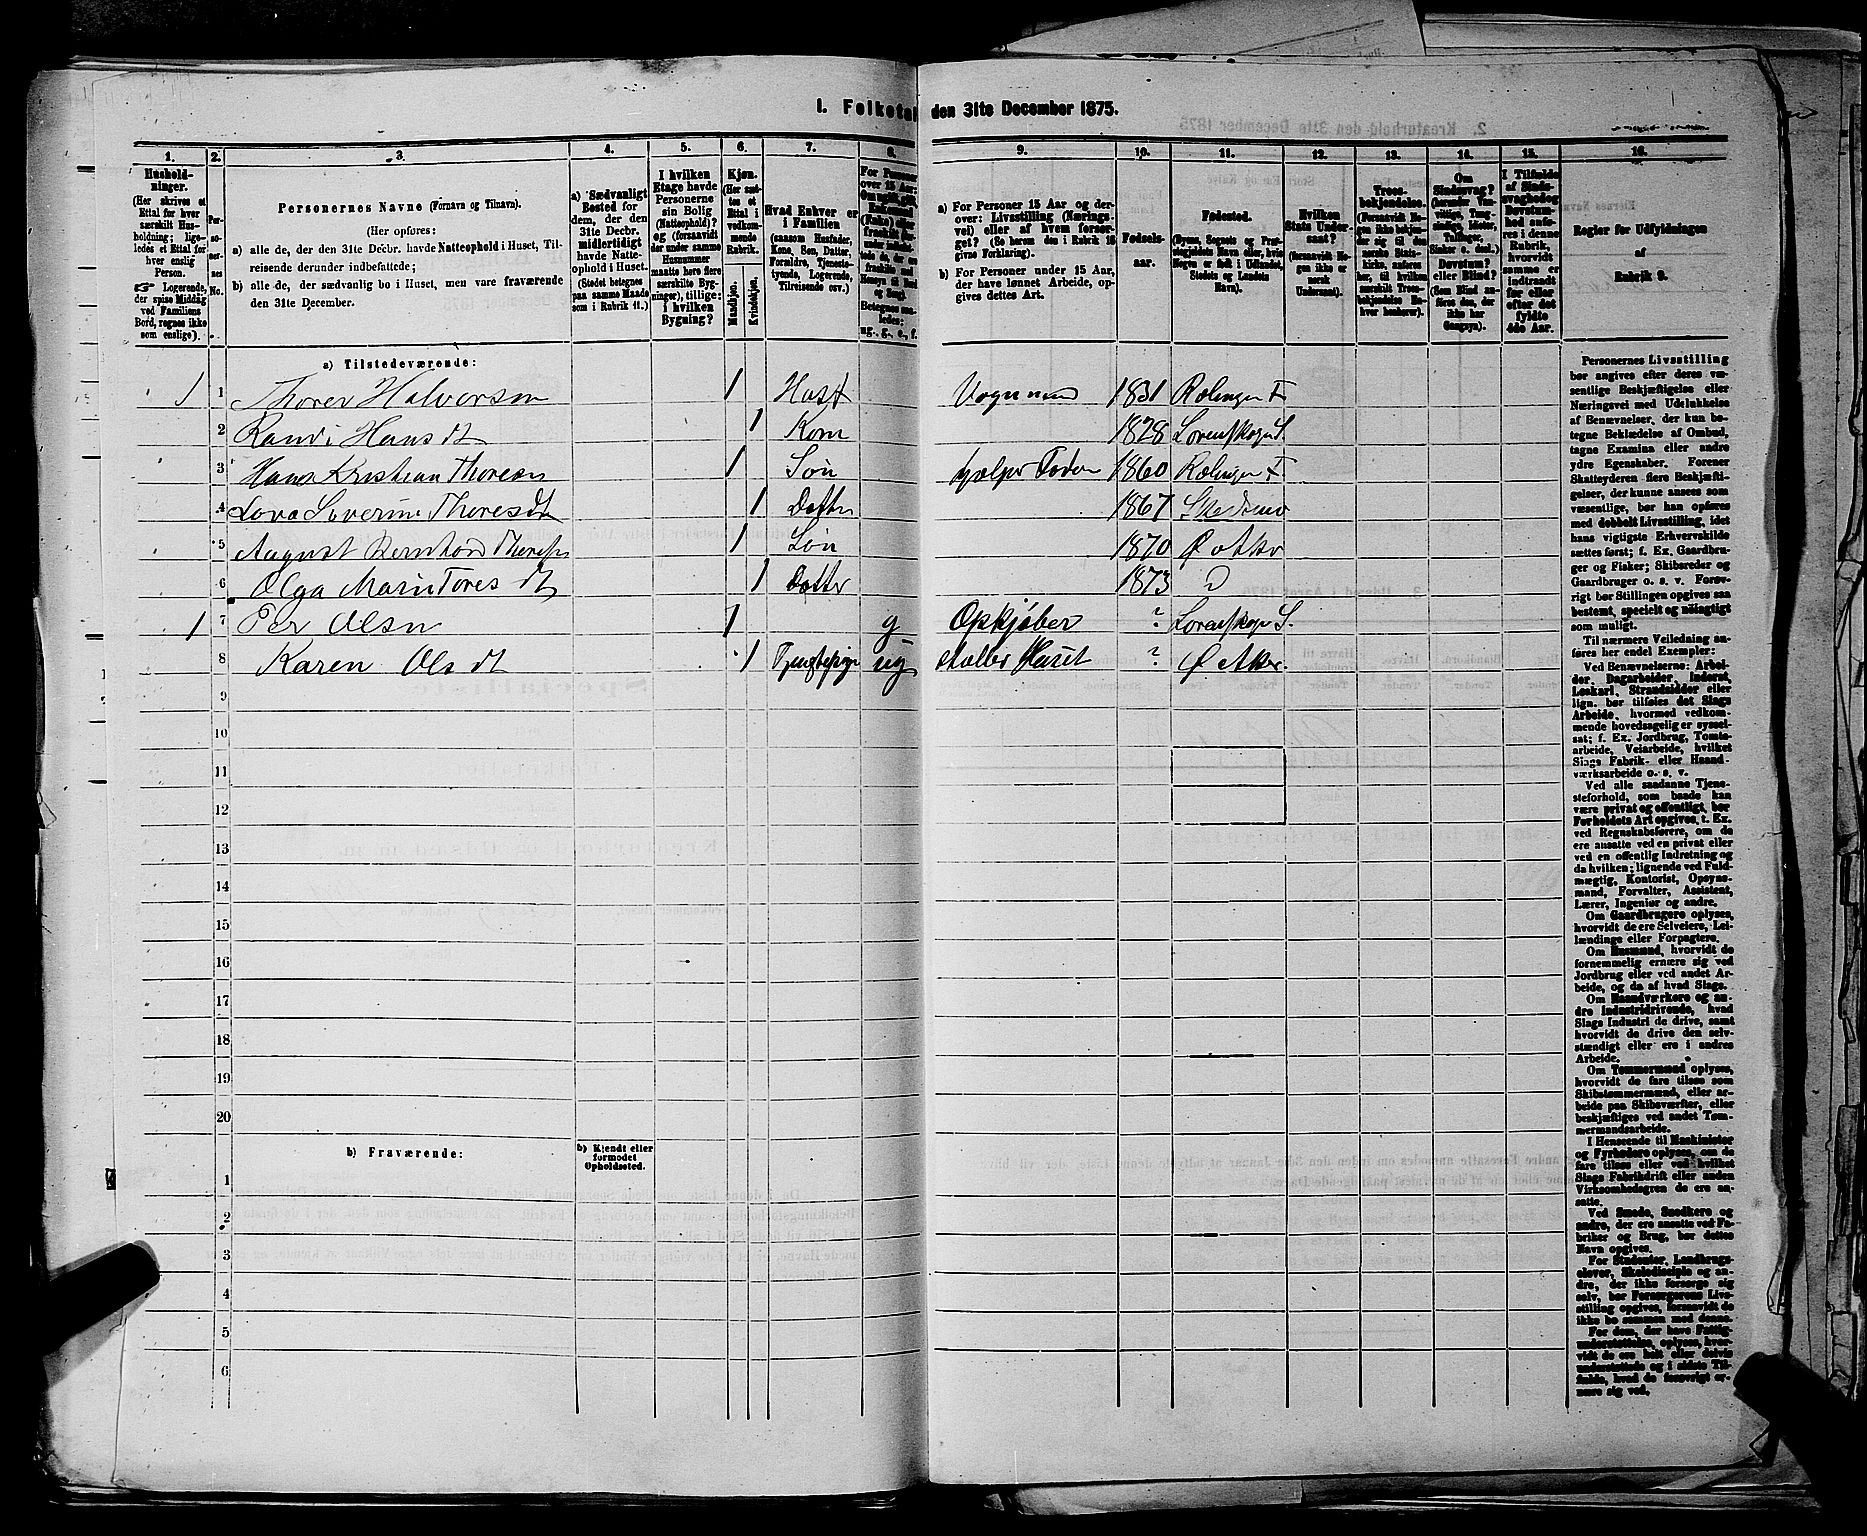 I. Folketal den 31te December 1875.
1. 2. 3. 4. 5. 6. 7. 8. 9. 10. 11. 12. 13. 14. 15. 16.
Hushold-
ninger.
(Her skrives et
Ettal for hver
særskilt Hus-
holdning; lige-
ledes et Ettal for
hver enslig
Person.
☞ Logerende,
der spise Middag
ved Familiens
Bord, regnes ikke
som enslige).
Per-
so-
ner-
nes
No.
Personernes Navne (Fornavn og Tilnavn).
(Her opføres:
a) alle de, der den 31te Decbr. havde Natteophold i Huset, Til-
reisende derunder indbefattede;
b) alle de, der sædvanlig bo i Huset, men vare fraværende
den 31te December.
a) Sædvanligt
Bosted for
dem, der den
31te Decbr.
midlertidigt
havde Natte-
ophold i Huset.
(Stedet betegnes
paa samme Maade
som i Rubrik 11.)
I hvilken
Etage havde
Personerne
sin Bolig
(Natteophold)?
og (forsaavidt
der under samme
Husnummer
maatte høre flere
særskilte Byg-
ninger), tillige:
i hvilken
Bygning?
Kjøn.
(Her sæt-
tes et
Ettal i
vedkom-
mende
Rubrik.
Mandkjøn.
Kvindekjøn.
Hvad Enhver er
i Familien
(saasom Husfader,
Kone, Søn, Datter,
Forældre, Tjeneste-
tyende, Logerende,
Tilreisende osv.)
For Personer
over 15 Aar:
ug., g., e., f.
a) For Personer 15 Aar og der-
over: Livsstilling (Nærings-
vei) eller af hvem forsør-
get? (Se herom den i Rubrik 16
givne Forklaring).
b) For Personer under 15 Aar,
der have lønnet Arbeide, op-
gives dettes Art.
Fødsels-
aar.
Fødested.
(Byens, Sognets og Præ-
stegjeldets Navn eller, hvis
Nogen er født i Udlandet,
Stedets og Landets
Navn).
Hvilken
Stats Under-
saat?
(forsaavidt No-
gen ikke er
norsk
Undersaat).
Troes-
bekjendelse.
(Forsaavidt No-
gen ikke bekjen-
der sig til den
norske Stats-
kirke, anføres
her, til hvilken
særskilt Troes-
bekjendelse En-
hver henhører).
Om
Sindssvag?
Døvstum?
eller Blind?
(Som Blind an-
føres den, der
ikke har
Gangsyn).
I Tilfælde
af Sinds-
svaghed og
Døvstum-
hed anfø-
res i denne
Rubrik,
hvorvidt
samme er
indtraadt
før eller
efter det
fyldte
4de Aar.
Regler for Udfyldningen
af
Rubrik 9.
a) Tilstedeværende:
1 1 Thorer Halvorsen 1 Husf Vognmd 1831 Rælingen F
2 Randi Hansdt 1 Kone 1828 Lørenskogen S.
3 Hans Kristian Thoresen 1 Søn hjelper Faderen 1860 Rælingen F
4 Lova Severine Thoresdt 1 Datter 1867 Skedsmo
5 August Bernhard Thoresen 1 Søn 1870 Ø Aker
6 Olga Marin Toresdt 1 Datter 1873 D
1 7 Per Olsen 1 g Opkjøber ? Lørenskogen S.
8 Karen Olsdt 1 Tjenestepige ug steller Huset ? Ø Aker.
9
10
11
12
13
14
15
16
17
18
19
20
b) Fraværende:
b) Kjendt eller
formodet
Opholdssted.
1
2
3
4
5
6
Personernes Livsstilling
bør angives efter deres væ-
sentlige Beskjæftigelse eller
Næringsvei med Udelukkelse
af Benævnelser, der kun be-
tegne Beklædelse af Ombud,
tagne Examina eller andre
ydre Egenskaber. Forener
Skatteyderen flere Beskjæfti-
gelser, der kunne ansees som
væsentlige, bør han opføres
med dobbelt Livsstilling, idet
hans vigtigste Erhvervskilde
sættes først; f. Ex. Gaardbru-
ger og Fisker; Skibsreder og
Gaardbruger o. s. v. Forøv-
rigt bør Stillingen opgives saa
bestemt, specielt og nøiagtigt
som muligt.
Til nærmere Veiledning an-
føres her endel Exempler:
Ved Benævnelserne: Arbei-
der, Dagarbeider, Inderst,
Løskarl, Strandsidder eller
lign. bør tilføies det Slags
Arbeide, hvormed vedkom-
mende hovedsagelig er syssel-
sat; f. Ex. Jordbrug, Tomte-
arbeide, Veiarbeide, hvilket
Slags Fabrik- eller Haand-
værksarbeide o. s. v.
Ved alle saadanne Tjene-
steforhold, som baade kan
være privat og offentligt, bør
Forholdets Art opgives, t. Ex.
ved Regnskabsførere, om de
ere ansatte ved en privat eller
ved en offentlig Indretning og
da hvilken; lignende ved Fuld-
mægtig, Kontorist, Opsyns-
mand, Forvalter, Assistent,
Lærer, Ingeniør og andre.
Om Gaardbrugere oplyses,
hvorvidt de ere Selveiere, Lei-
lændinge eller Forpagtere.
Om Husmænd, hvorvidt de
fornemmelig ernære sig ved
Jordbrug eller ved andet Ar-
beide, og da af hvad Slags.
Om Haandværkere og an-
dre Industridrivende, hvad
Slags Industri de drive, samt
hvorvidt de drive den selv-
stændigt eller ere i andres
Arbeide.
Om Tømmermænd oplyses,
hvorvidt de fare tilsøs som
Skibstømmermænd, eller ar-
beide paa Skibsværfter, eller
beskjæftiges ved andet Tøm-
mermandsarbeide.
I Henseende til Maskinister
og Fyrbødere oplyses, om de
fare tilsøs eller ved hvilket
Slags Fabrikdrift eller anden
Virksomhedsgren de ere an-
satte.
Ved Smede, Snedkere og
andre, der ere ansatte ved Fa-
briker og Brug, bør dettes
Navn opgives.
For Studenter, Landbrugs-
elever, Skoledisciple og an-
dre, der ikke forsørge sig
selv, bør Forsørgerens Liv-
stilling opgives, forsaavidt de
ikke bo sammen med denne.
For dem, der have Fattig-
understøttelse, oplyses, hvor-
vidt de ere helt eller delvis
understøttede og i sidste Til-
fælde, hvad de forøvrigt er-
nære sig ved.